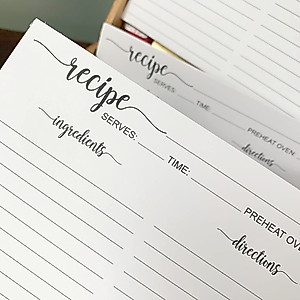 recipe
SERVES: TIME: PREHEAT OVEN
ingredients directions
recipe
SERVES: TIME: PREHEAT OVEN:
directions